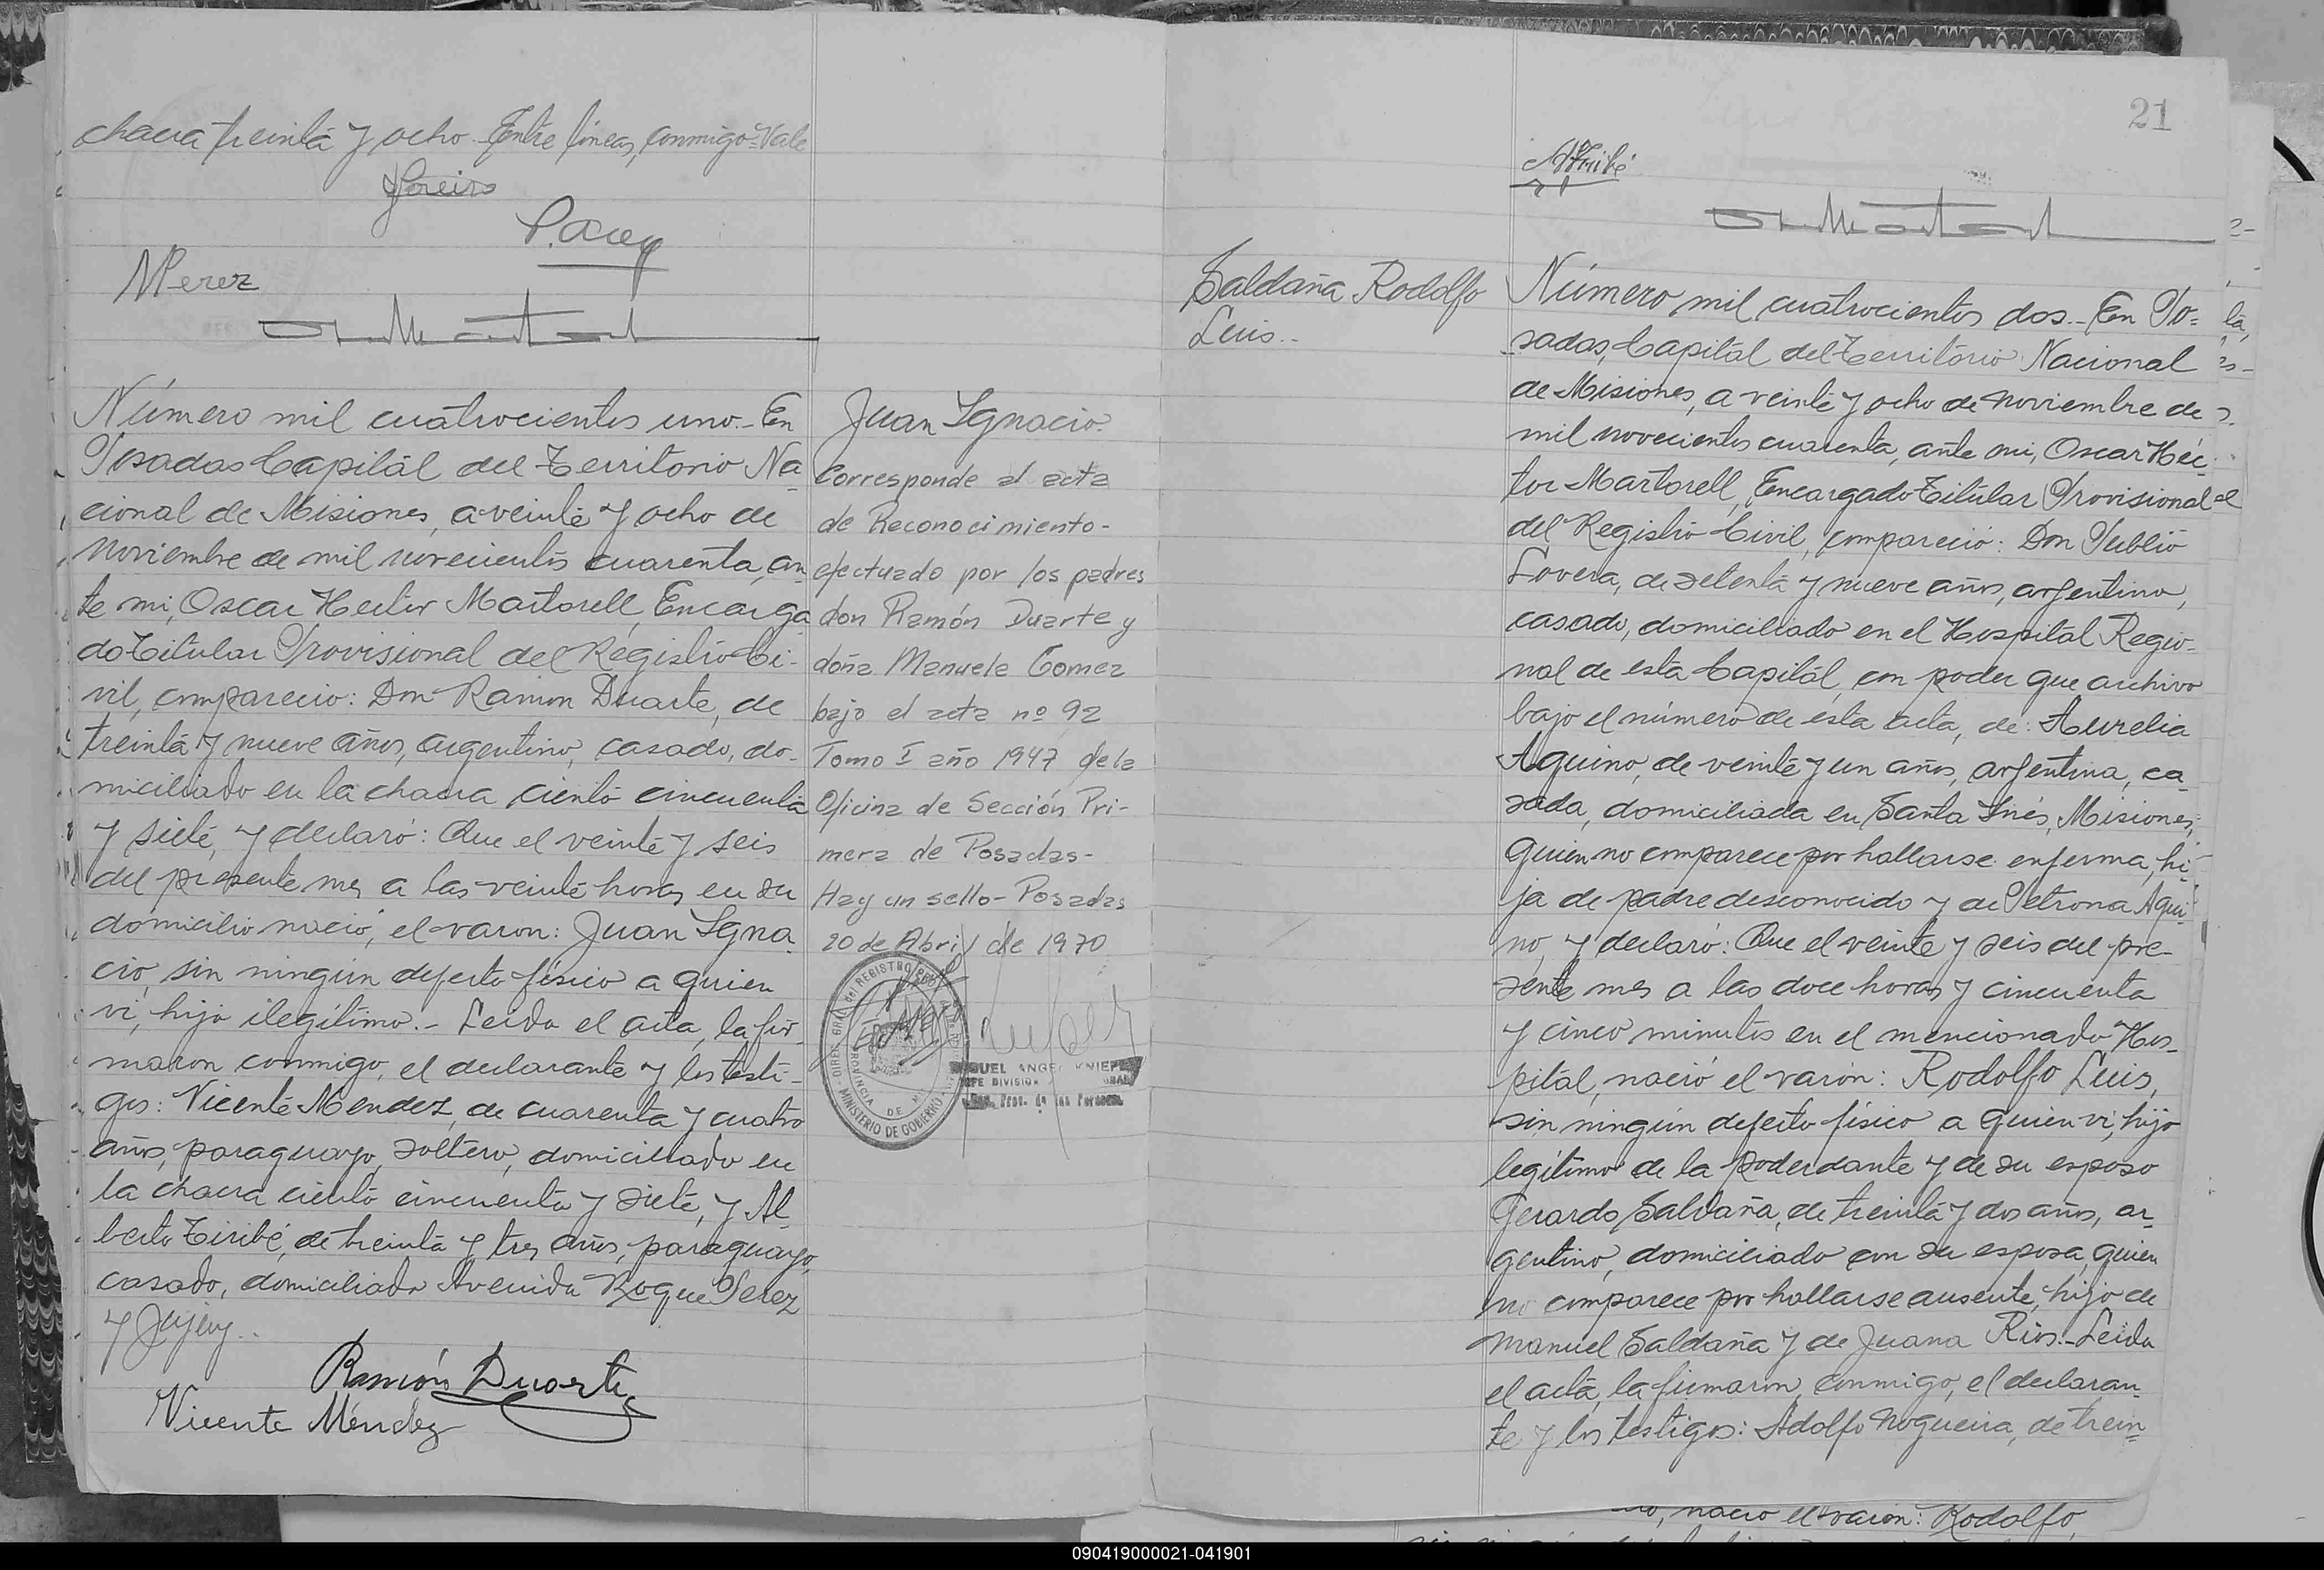 chacra treinta y ocho. Entre líneas, conmigo = Vale
P. Acey
MPerez
Número mil cuatrocientos uno.- En
Posadas Capital del Territorio Na
cional de Misiones, a veinte y ocho de
Noviembre de mil novecientos cuarenta, an
te mi, Oscar Hector Martorell, Encarga
do Titular Provisional del Registro Ci-
vil, compareció: Don Ramon Duarte, de
treinta y nueve años, argentino, casado, do-
miciliado en la chacra ciento cincuenta
y siete, y declaró: Que el veinte y seis
del presente mes a las veinte horas en su
domicilio nació, el varon: Juan Igna
cio, sin ningún defecto físico a quien
vi, hijo ilegítimo.- Leída el acta, la fir-
maron conmigo, el declarante y los testi-
gos: Vicente Mendez, de cuarenta y cuatro
años, paraguayo, soltero, domiciliado en
la chacra ciento cincuenta y siete, y Al-
berto Tiribé, de treinta y tres años, paraguayo,
casado, domiciliado Avenida Roque Perez
y Jujuy..
Ramón Duarte
Vicente Méndez
Juan Ignacio.
Corresponde al acta
de Reconocimiento-
efectuado por los padres
don Ramón Duarte y
doña Manuela Gomez
bajo el acta nº 92
Tomo I año 1947 de la
Oficina de Sección Pri-
mera de Posadas-
Hay un sello- Posadas
20 de Abril de 1970
DIREC. GRAL. del REGISTRO
PROVINCIA DE
MINISTERIO DE GOBIERNO
DIVISION
21
ATiribé
Saldaña Rodolfo
Luis..
Número mil cuatrocientos dos.- En Po=
sadas, Capital del Territorio Nacional
de Misiones, a veinte y ocho de Noviembre de
mil novecientos cuarenta, ante mi, Oscar Héc-
tor Martorell, Encargado Titular Provisional
del Registro Civil, compareció: Don Publio
Lovera, de setenta y nueve años, argentino,
casado, domiciliado en el Hospital Regio-
nal de esta Capital, con poder que archivo
bajo el número de ésta acta, de: Aurelia
Aquino, de veinte y un años, argentina, ca-
sada, domiciliada en Santa Inés, Misiones,
quien no comparece por hallarse enferma, hi-
ja de padre desconocido y de Petrona Aqui-
no, y declaró: Que el veinte y seis del pre-
sente mes a las doce horas y cincuenta
y cinco minutos en el mencionado Hos-
pital, nació el varón: Rodolfo Luis,
sin ningún defecto físico a quien vi, hijo
legítimo de la poderdante y de su esposo
Gerardo Saldaña, de treinta y dos años, ar-
gentino, domiciliado con su esposa, quien
no comparece por hallarse ausente, hijo de
Manuel Saldaña y de Juana Rios.- Leída
el acta, la firmaron conmigo, el declaran-
te y los testigos: Adolfo Nogueira, de trein-
nació el varon: Rodolfo,
090419000021-041901